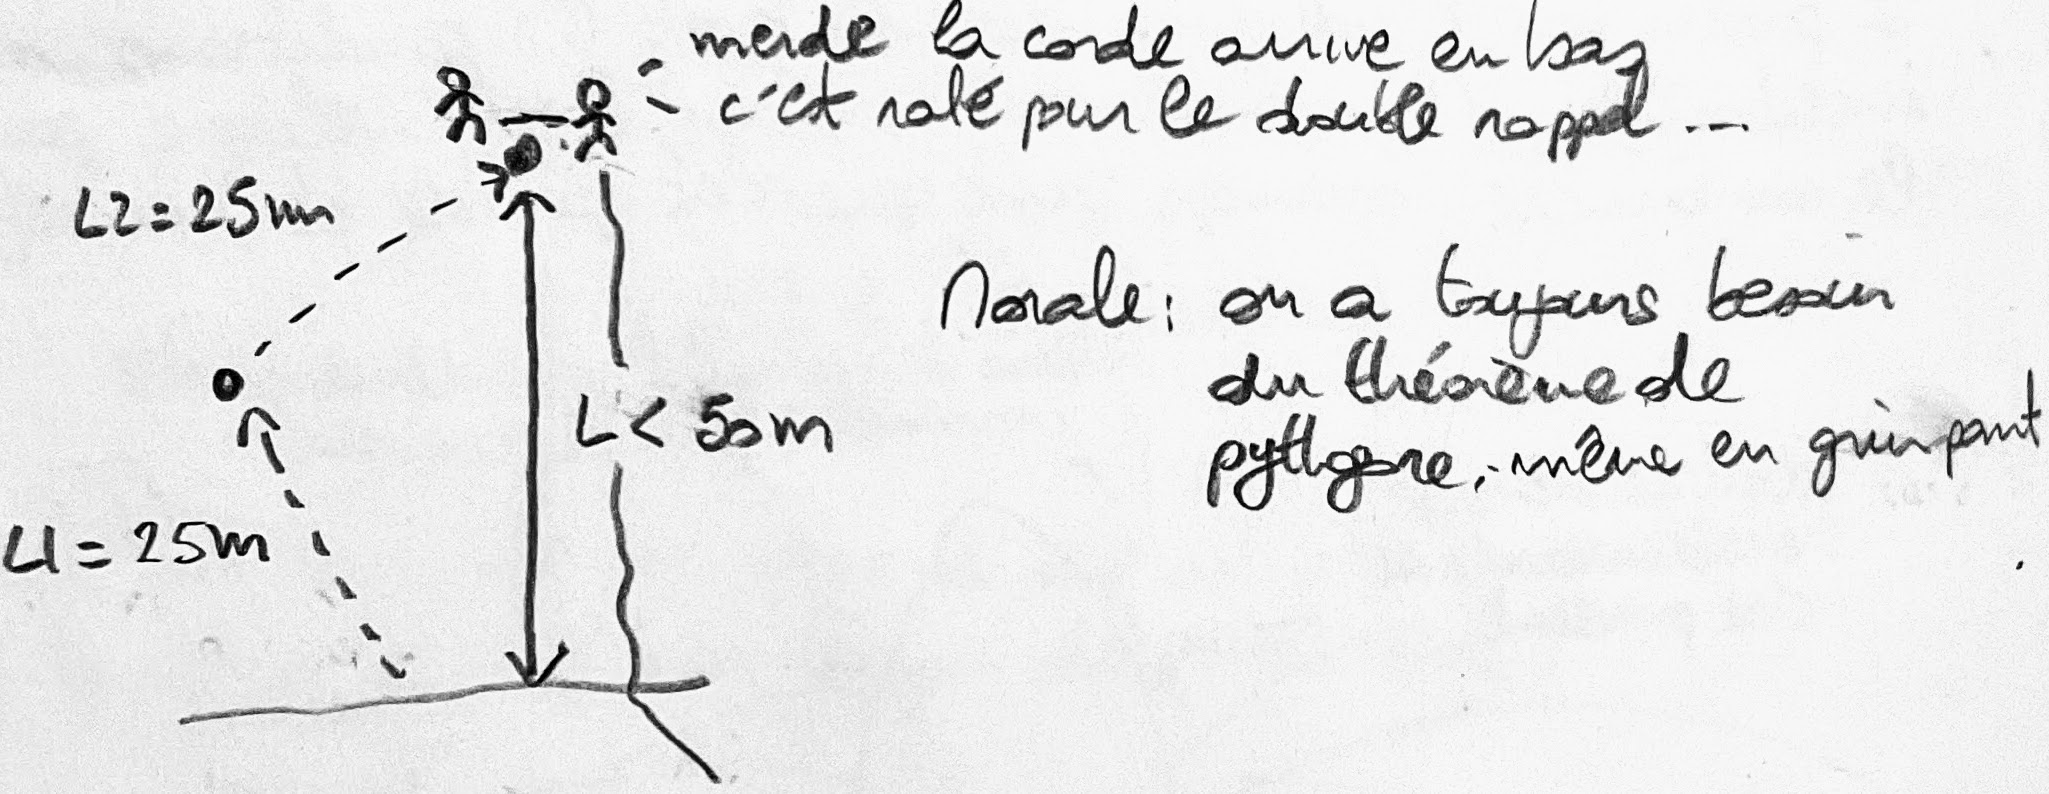 merde la corde arrive en bas
c'est raté pour le double rappel ...
L2 = 25m
Morale : on a toujours besoin
du théorème de
pythgore, même en grimpant
L < 50m
L1 = 25m